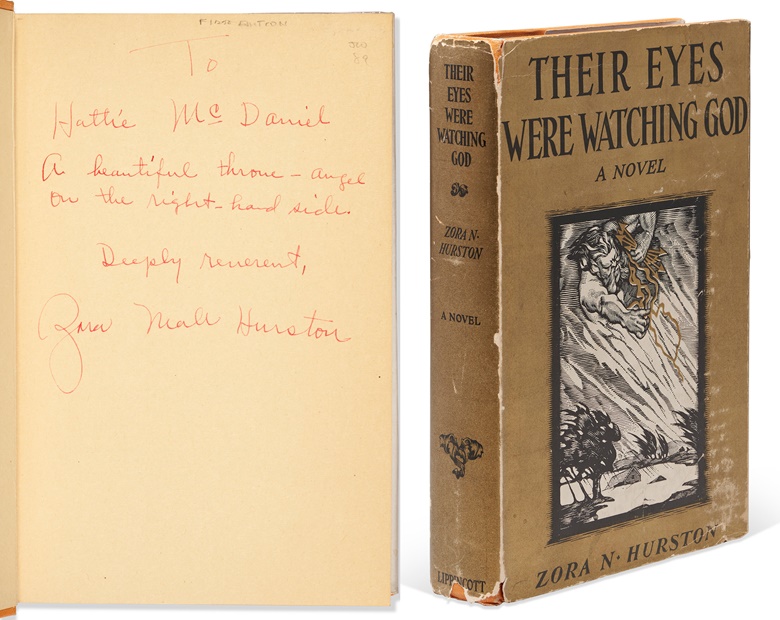 FIRST EDITION
To
Hattie McDaniel
A beautiful throne - angel
on the right-hand side.
Deeply reverent,
Zora Neale Hurston
THEIR
EYES
WERE
WATCHING
GOD
ZORA N·
HURSTON
A NOVEL
LIPPINCOTT
THEIR EYES
WERE WATCHING GOD
A NOVEL
ZORA N· HURSTON